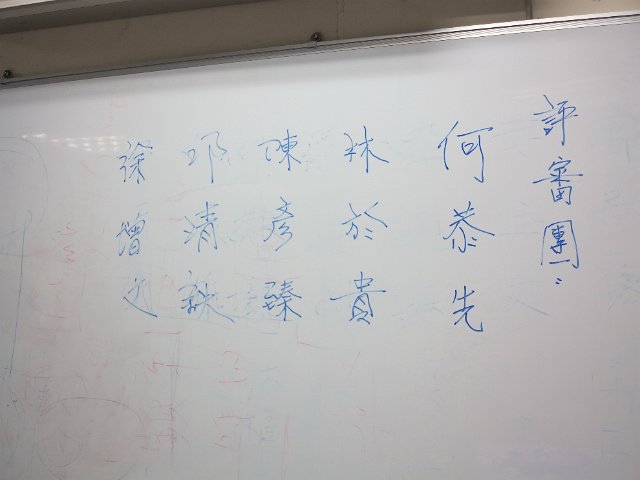 評審團:
何恭先
林於貴
陳彥臻
邱清誠
徐增